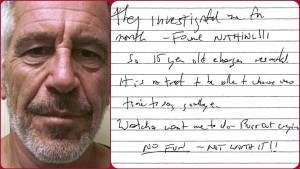 They investigated me for
month – Found NOTHING!!!
So 15 year old charges resulted
It is a treat to be able to choose one's
time to say goodbye.
Watcha want me to do – Burst out crying
NO FUN – NOT WORTH IT!!